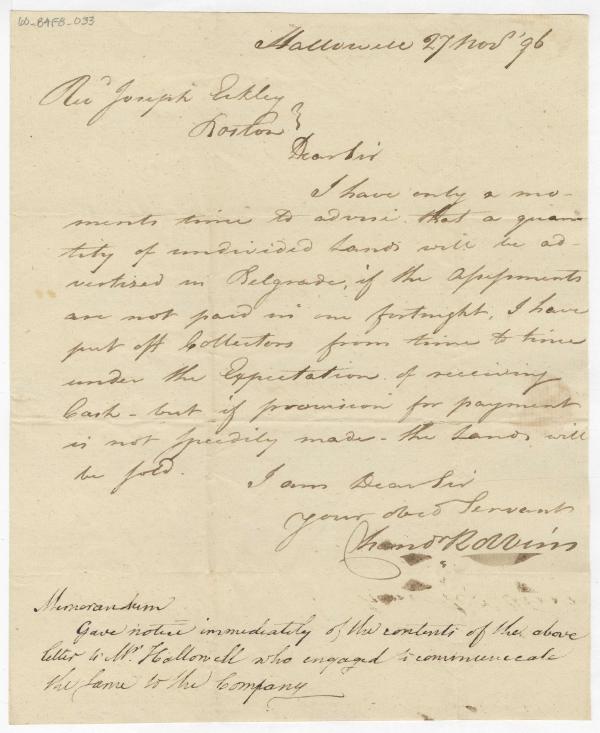 60-B4F8-033
Hallowell 27 Novr '96
Revd Joseph Eckley
Boston }
Dear Sir
I have only a mo-
ments time to advise that a quan
tity of undivided Lands will be ad-
vertized in Belgrade, if the Assessments
are not paid in one fortnight, I have
put off Collectors from time to time
under the Expectation of receiving
Cash - but if provision for payment
is not speedily made - the Lands will
be sold.
I am Dear Sir
your obed Servant
Chandr Robbins
Memorandum
Gave notice immediately of the contents of the above
letter to Mr. Hallowell who engaged to communecate
the same to the Company